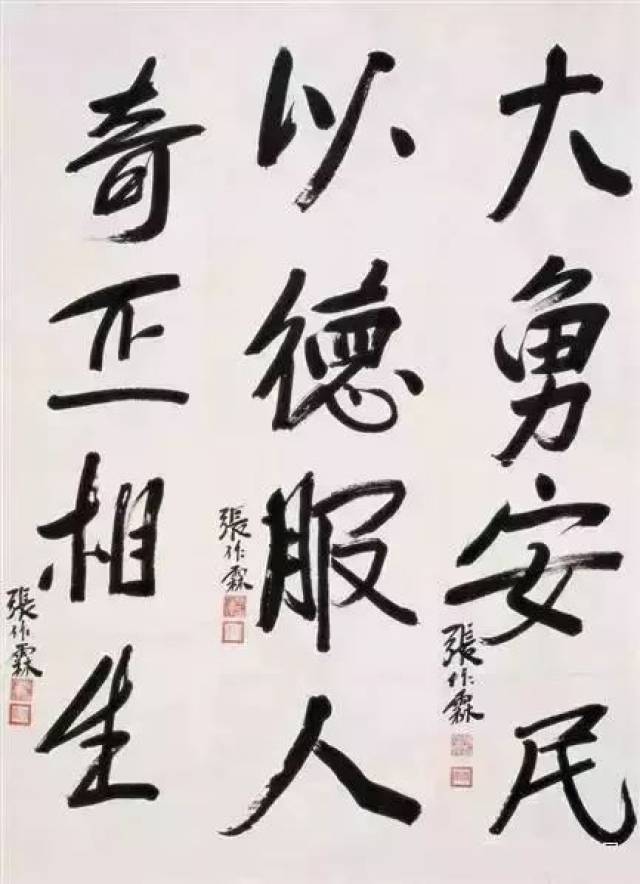 大勇安民
張作霖
以德服人
張作霖
奇正相生
張作霖